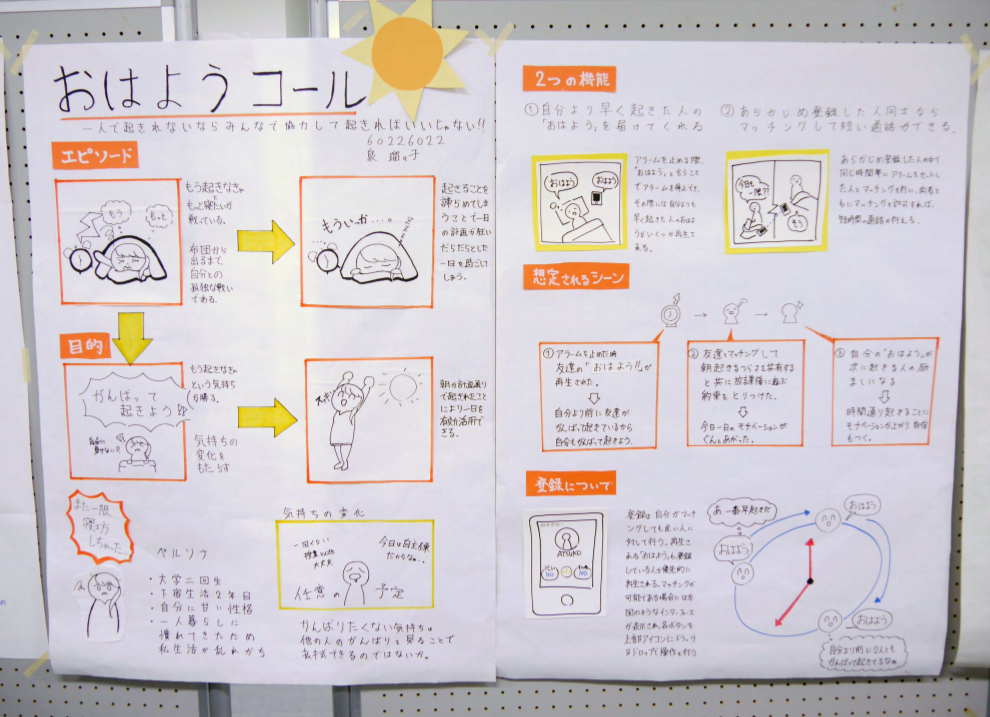 おはようコール
一人で起きれないならみんなで協力して起きればいいじゃない!!
60226022
泉 瑠り子
エピソード
もう
もっと
もう起きなきゃ
もっと寝たいが
戦っている。
布団から
出るまで、
自分との
孤独な戦い
である。
もういっか…。
起きることを
諦めてしま
うことで一日
の計画が狂い
だらだらとした
一日を過ごして
しまう。
目的
がんばって
起きよう!!
もう起きなきゃ
という気持ち
が勝る。
気持ちの
変化を
もたらす
朝の計画通り
で起きれたこと
により一日を
有効活用で
きる。
また一限
寝坊
しちゃった…
ペルソナ
・大学二回生
・下宿生活2年目
・自分に甘い性格
・一人暮らしに
慣れてきたため
私生活が乱れがち
気持ちの変化
一限くらい
大丈夫
今日は自主練
だからなぁ…
任意の予定
がんばりたくない気持ちは
他の人のがんばりを見ることで
払拭できるのではないか。
2つの機能
①自分より早く起きた人の
「おはよう」を届けてくれる
おはよう
おはよう
アラームを止める際、
「おはよう」と言うこと
でアラームを停止でき、
その際には自分よりも
早く起きた人のおは
ようがいくつか再生さ
れる。
②あらかじめ登録した人同士なら
マッチングして短い通話ができる。
今日も
一限??
そう
あらかじめ登録した人の中で
同じ時間帯にアラームをセットし
た人とマッチングを行い、両者と
もにマッチングを許可すれば、
短時間の通話が行える。
想定されるシーン
①アラームを止めた時
友達の"おはよう!!"が
再生された。
自分より前に友達が
がんばって起きているから
自分もがんばって起きよう。
②友達とマッチングして
朝起きるつらさを共有する
と共に放課後に遊ぶ
約束をとりつけた。
今日一日のモチベーションが
ぐんとあがった。
③自分の"おはよう"が
次に起きる人の励
ましになる
時間通り起きることに
モチベーションが上がり自信
もつく。
登録について
ATSUKO
NO
登録は自分がマッチ
ングしても良い人に
対して行う。再生さ
れる"おはよう"も登録
している人が優先的に
再生される。マッチングが
可能である場合には左
図のようなインターフェース
が表示され、各ボタンを
上部アイコンにドラッグ
&ドロップして操作を行う
あ、一番早起きだ
おはよう!
おはよう
おはよう
自分より前に2人も
がんばって起きてるなぁ